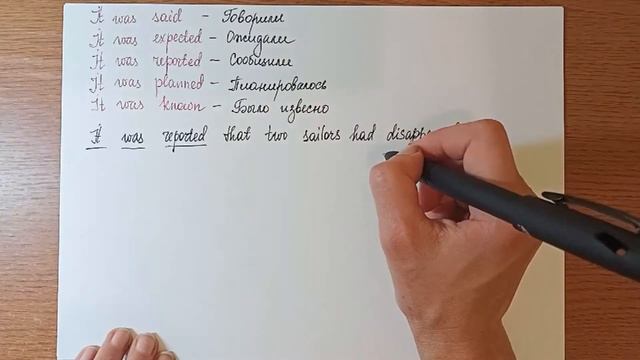 It was said – Говорили
It was expected – Ожидали
It was reported – Сообщили
It was planned – Планировалось
It was known – Было извесно
It was reported that two sailors had